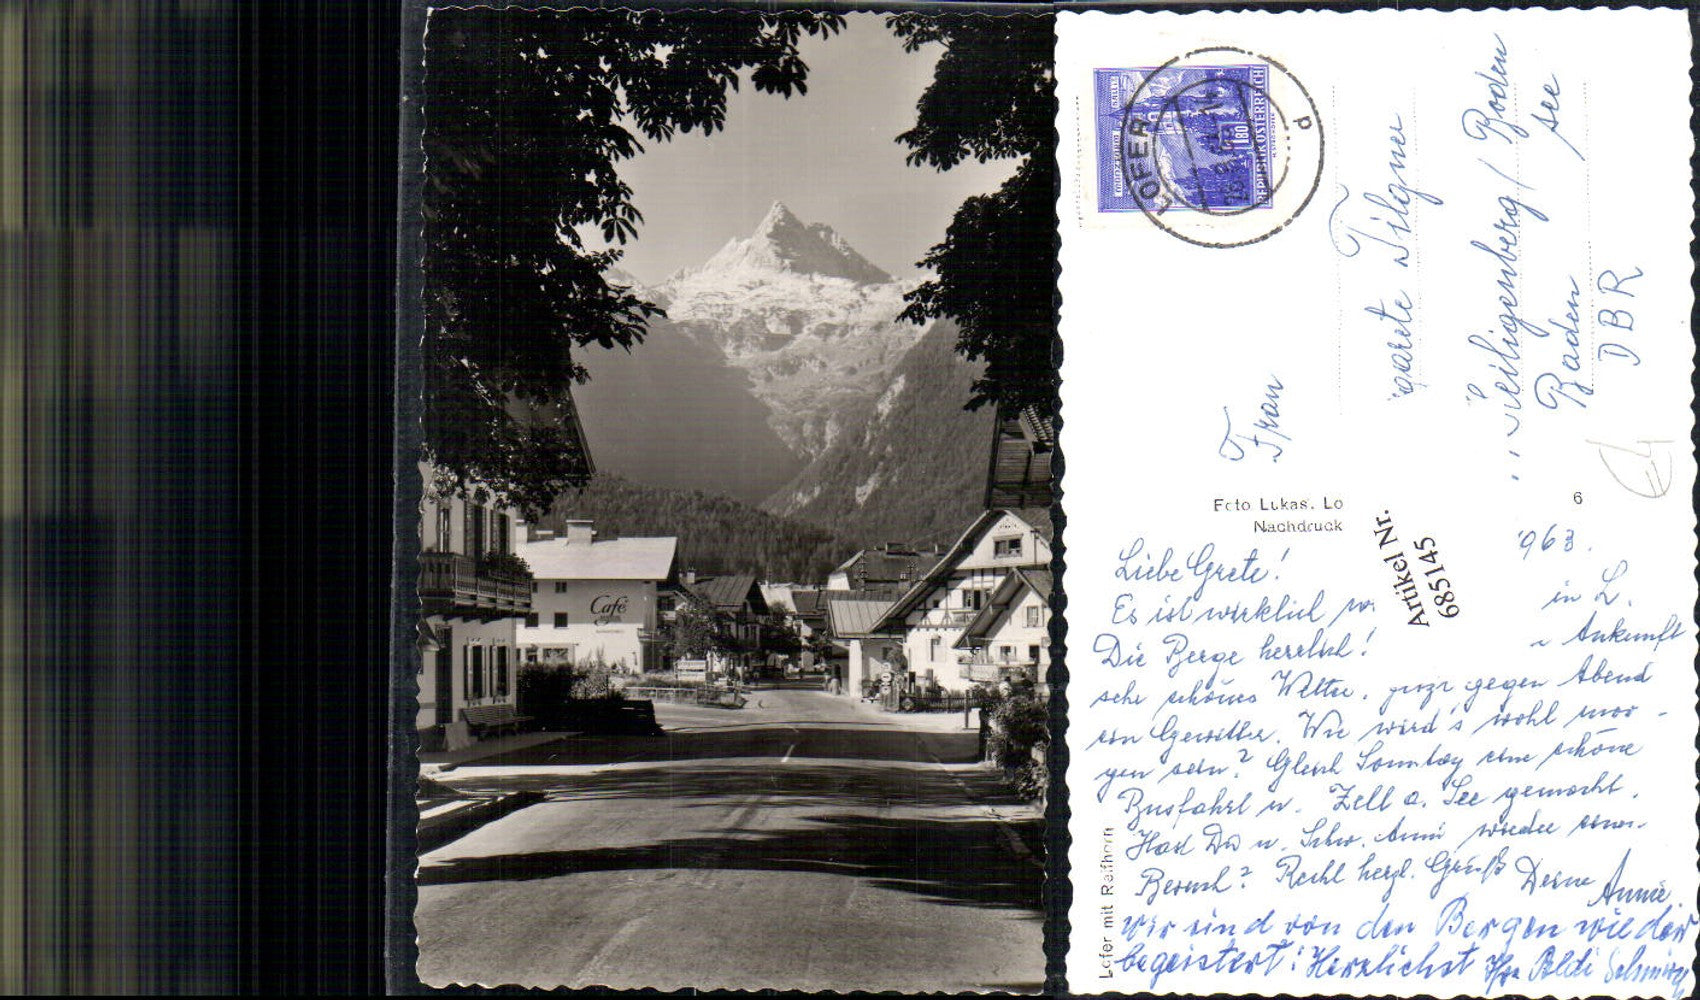 Café
LOFER
P
REPUBLIK ÖSTERREICH
1.80
Frau
garete Tilgner
Heiligenberg / Boden
see
Baden
DBR
Foto Lukas, Lo
Nachdruck
6
Artikel Nr.
685145
Lofer mit Reifhorn
963.
Liebe Grete!
Es ist wirklich in L.
Die Berge herrlich! Ankunft
sehr schönes Wetter, gegen Abend
ein Gewitter. Wie wird's wohl mor-
gen sein? Gleich Sonntag eine schöne
Busfahrt n. Zell a. See gemacht.
Hast Du u. Schw. Anni wieder
Besuch? Recht herzl. Grüße Deine Annie
wir sind von den Bergen wieder
begeistert! Herzlichst